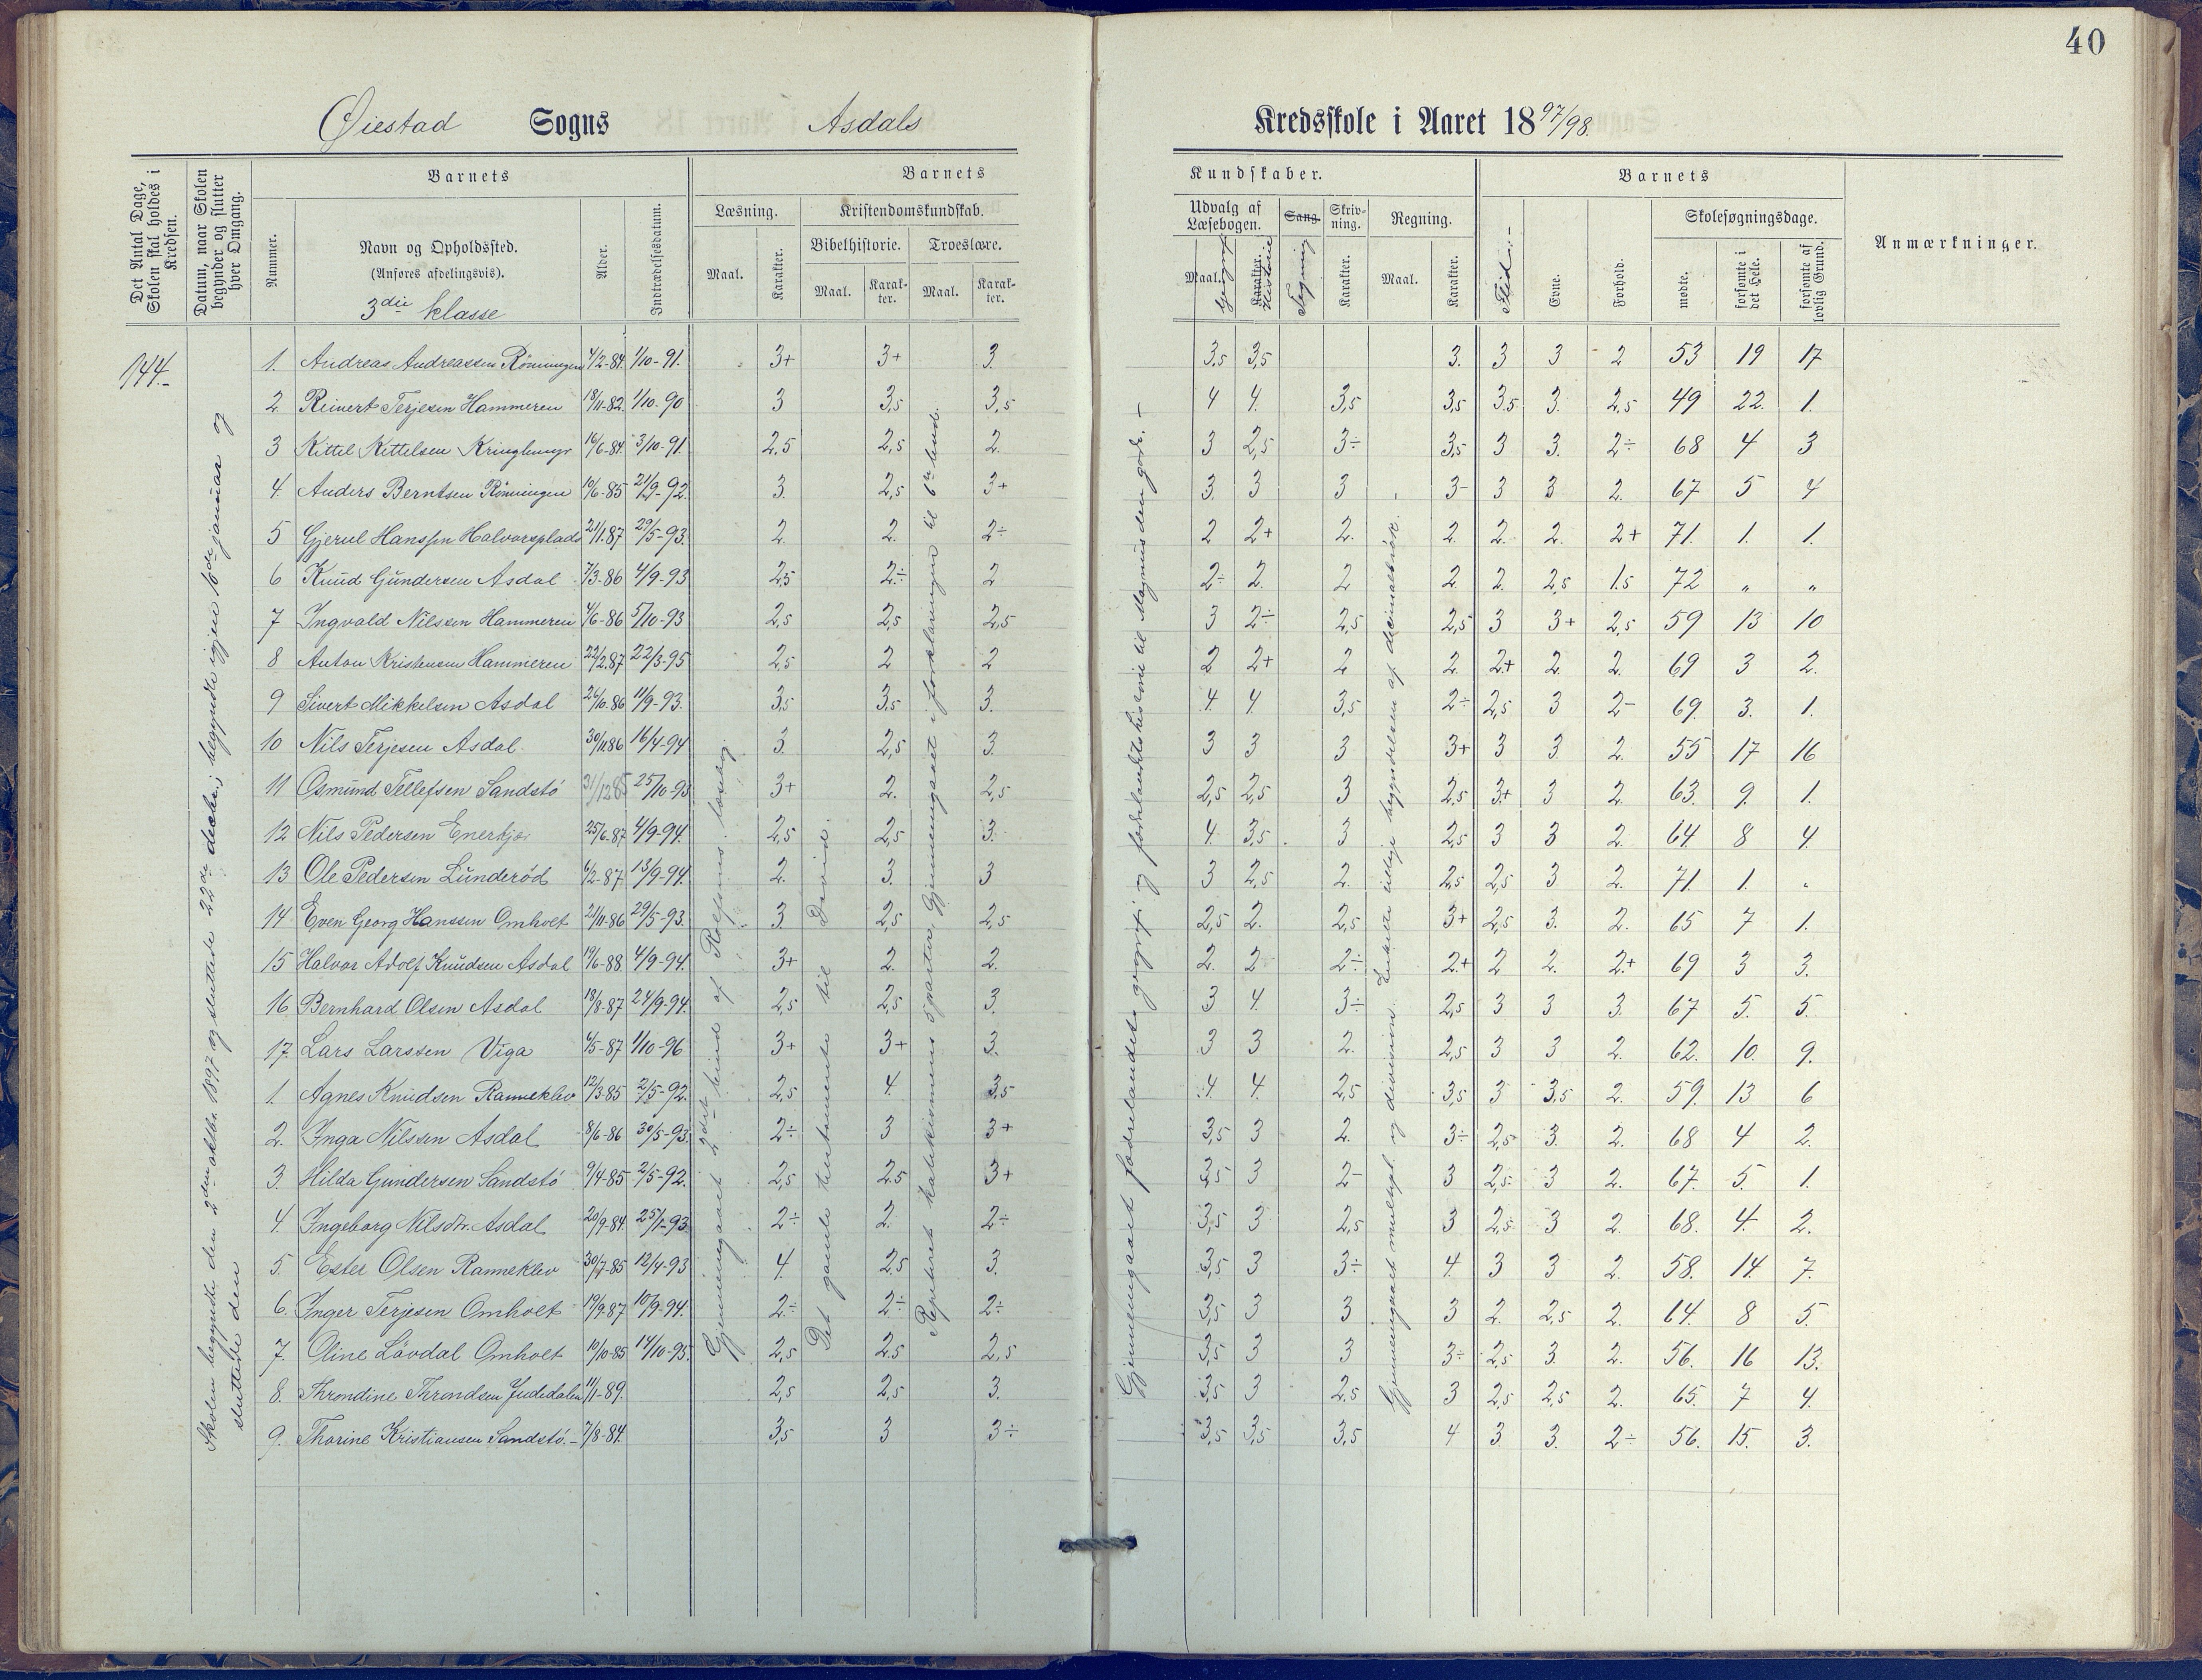 40
Øiestad Sogns Asdals Kredsskole i Aaret 1897/98.
Det Antal Dage, Skolen skal holdes i Kredsen.
Datum, naar Skolen begynder og slutter hver Omgang.
Barnets
Nummer.
Navn og Opholdssted.
(Anføres afdelingsvis).
3die klasse
Alder.
Indtrædelsesdatum.
Barnets Kundskaber.
Læsning.
Maal.
Karakter.
Kristendomskundskab.
Bibelhistorie.
Maal.
Karakter.
Troeslære.
Maal.
Karakter.
Udvalg af Læsebogen.
Maal. Geografi
Karakter. Historie
Sang. Tegning
Skrivning.
Karakter.
Regning.
Maal.
Karakter.
Barnets
Flid.-
Evne.
Forhold.
Skolesøgningsdage.
mødte.
forsømte i det Hele.
forsømte af lovlig Grund.
Anmærkninger.
144.-
Skolen begyndte den 2den oktbr. 1897 og sluttede 22de decbr.; begyndte igjen 10de januar og
sluttede den
Gjennemgaaet 2det bind af Rolfsens læsebog.
Det gamle testamente til David.
Repeteret katekismens 5 parter, gjennemgaaet i forklaringen til 6te bud.
Gjennemgaaet fædrelandets geografi og fædrelandshistorie til Magnus den gode. -
Gjennemgaaet multipl. og division. Enkelte tillige begyndelsen af decimalbrøk.
1. Andreas Andreassen Rönningen 4/2-84. 1/10-91. 3+ 3+ 3. 3,5 3,5 3. 3 3 2 53 19 17
2. Reinert Terjesen Hammeren 18/11-82. 1/10-90 3 3,5 3,5 4 4. 3,5 3,5 3.5 3. 2,5 49 22. 1.
3 Kittel Kittelsen Kringlemyr 16/6-84. 3/10-91. 2,5 2,5 2. 3 2,5 3÷ 3,5 3 3. 2÷ 68 4 3
4. Anders Berntsen Rönningen 10/6-85 21/9-92. 3. 2,5 3+ 3. 3 3 3- 3 3 2. 67 5 4
5 Gjerul Hanssen Halvorsplads 21/1.87 29/5-93. 2. 2. 2÷ 2 2+ 2. 2. 2. 2. 2+ 71. 1. 1.
6 Knud Gundersen Asdal 7/3-86 4/9-93 2,5 2÷ 2 2÷ 2. 2 2 2. 2,5 1.5 72 „ „
7 Ingvald Nilssen Hammeren 4/6-86 5/10-93 2,5 2,5 2,5 3 2÷ 2,5 2,5 3 3+ 2,5 59 13 10
8 Anton Kristensen Hammeren 22/2.87 22/3-95 2,5 2 2 2 2+ 2 2. 2+ 2. 2. 69 3 2.
9 Sivert Mikkelsen Asdal 26/10.86 11/9-93. 3,5 3,5 3. 4. 4. 3,5 2÷ 2,5 3 2- 69. 3. 1.
10 Nils Terjesen Asdal 30/11.86 16/4-94 3. 2,5 3. 3 3 3 3+ 3 3. 2. 55 17 16
11 Osmund Tellefsen Sandstö 31/12.85 25/10-93 3+ 2. 2,5 2,5 2,5 3 2,5 3+ 3 2. 63. 9. 1.
12 Nils Pedersen Enerkjær 25/6.87 4/9-94. 2,5 2,5 3. 4. 3,5 3 2,5 3 3 2. 64 8 4.
13 Ole Pedersen Lunderöd 6/2-87 13/9-94. 2. 3. 3 3 2,5 2. 2,5 2,5 3 2. 71. 1. „
14 Even Georg Hanssen Omholt 21/11-86 29/5-93. 3. 2,5 2,5 2,5 2. 2,5 3+ 2,5 3. 2. 65 7 1.
15 Halvor Adolf Knudsen Asdal 19/6-88. 4/9-94. 3+ 2. 2. 2. 2 2÷ 2+ 2 2. 2+ 69 3 3.
16 Bernhard Olsen Asdal 18/8-87 24/9-94. 2,5 2,5 3. 3 4. 3÷ 2,5 3 3 3. 67 5. 5.
17. Lars Larssen Viga 6/5-87 1/10-96 3+ 3+ 3. 3 3 2. 2,5 3 3 2. 62. 10. 9.
1. Agnes Knudsen Ranneklev 12/3-85 2/5-92. 2,5 4. 3,5 4 4. 2,5 3,5 3 3,5 2. 59. 13 6
2. Inga Nilssen Asdal 8/6-86 30/5-93. 2÷ 3 3+ 3,5 3 2. 3÷ 2,5 3. 2. 68 4 2.
3. Hilda Gundersen Sandstö 9/4-85 2/5-92. 2,5 2.5 3+ 3,5 3 2- 3 2,5 3 2. 67. 5. 1.
4. Ingeborg Nilsdtr. Asdal 20/9-84. 25/1-93. 2÷ 2. 2÷ 3,5 3 2,5 3 2,5 3 2. 68. 4. 2.
5. Ester Olsen Ranneklev 30/7-85 12/4-93 4. 2.5 3. 3,5 3 3÷ 4. 3 3 2. 58. 14. 7.
6. Inger Terjesen Omholt 19/9.87 10/9-94. 2÷ 2÷ 2÷ 3,5 3 3 3 2. 2,5 2. 14. 8 5.
7. Oline Lövdal Omholt 10/10-85 14/10-95. 2,5 2.5 2,5 3,5 3 3 3÷ 2,5 3. 2. 56. 16 13.
8. Throndine Throndsen Judedalen 11/1-89. 2,5 2,5 3. 3,5 3 2,5 3 2,5 2,5 2. 65. 7 4.
9. Thorine Kristiansen Sandstö. - 7/8-84. 3,5 3 3÷ 3,5 3,5 3,5 4 3. 3. 2÷ 56. 15. 3.